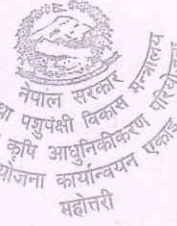 नेपाल सरकार
पशुपंक्षी विकास मन्त्रालय
कृषि आधुनिकीकरण परियोजना
योजना कार्यान्वयन एकाइ
महोत्तरी